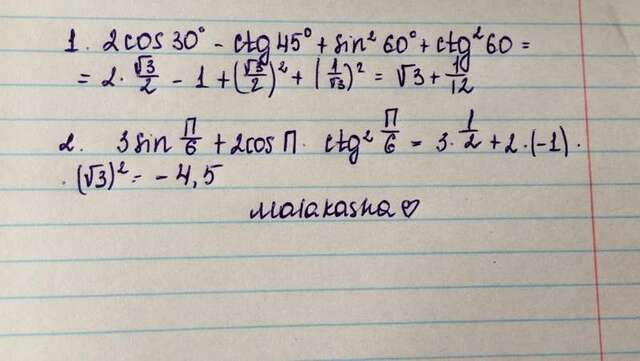 1. 2cos 30° - ctg 45° + sin² 60° + ctg² 60 =
= 2 · √3/2 - 1 + (√3/2)² + (1/√3)² = √3 + 1/12
2. 3 sin П/6 + 2cos П · ctg² П/6 = 3 · 1/2 + 2 · (-1) ·
· (√3)² = - 4,5
malakasha♡